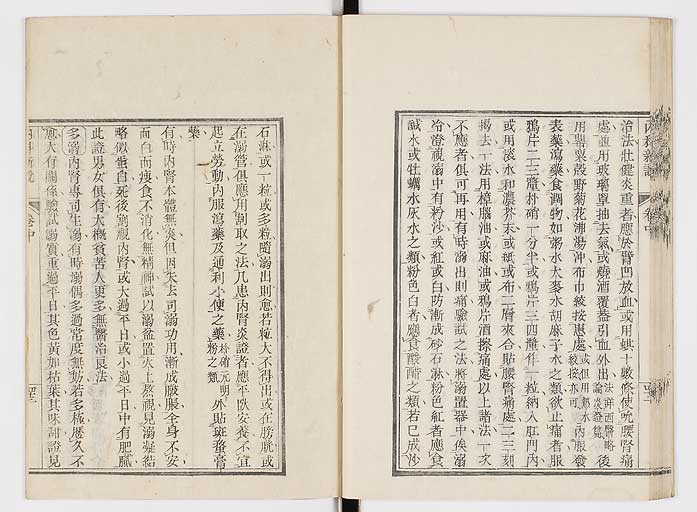 內科新說
卷中
治法壯健炎重者應於臂凹放血或用蜞十數條使吮腰腎痛
處並用玻璃單抽去氣或燒酒覆器引血外出法詳西醫略論炎證篇後
用罌粟殼野菊花沸湯沖布巾絞挼患處或但用熱水絞挼亦可內服發
表藥瀉藥食調物如粥水大麥水胡麻子水之類欲止痛者服
鴉片二三釐朴硝一分半或鴉片三四釐作一粒納入肛門內
或用淡水和濃芥末或紙或布二層夾合貼腰腎痛處二三刻
揭去一法用樟腦油或麻油或鴉片酒擦痛處以上諸法一次
不應者俱可再用有時溺出則痛驗試之法將溺置器中俟溺
冷澄視溺中有粉沙或紅或白防漸成砂石淋粉色紅者應食
鹹水或牡蠣水灰水之類粉色白者應食酸酢之類若已成沙
石淋或一粒或多粒隨溺出則愈若粒大不得出或在膀胱或
在溺管俱應用制取之法凡患內腎炎證者應平臥安養不宜
起立勞動內服瀉藥及通利小便之藥朴硝元明粉之類外貼斑蝥膏
藥
有時內腎本體無炎但因失去司溺功用漸成臌脹全身不安
面白而瘦食不消化無精神試以溺盆置火上然視見溺凝結
略似蛋白死後剖視內腎或大過平日或小過平日中有肥膩
此證男女俱有大概貧苦人更多無醫治良法
多溺內腎專司生溺有時溺偶多過常度無妨若多極歷久不
愈大有關係驗試溺質重過平日其色黃如枯葉其味甜證見
內科新說
卷中